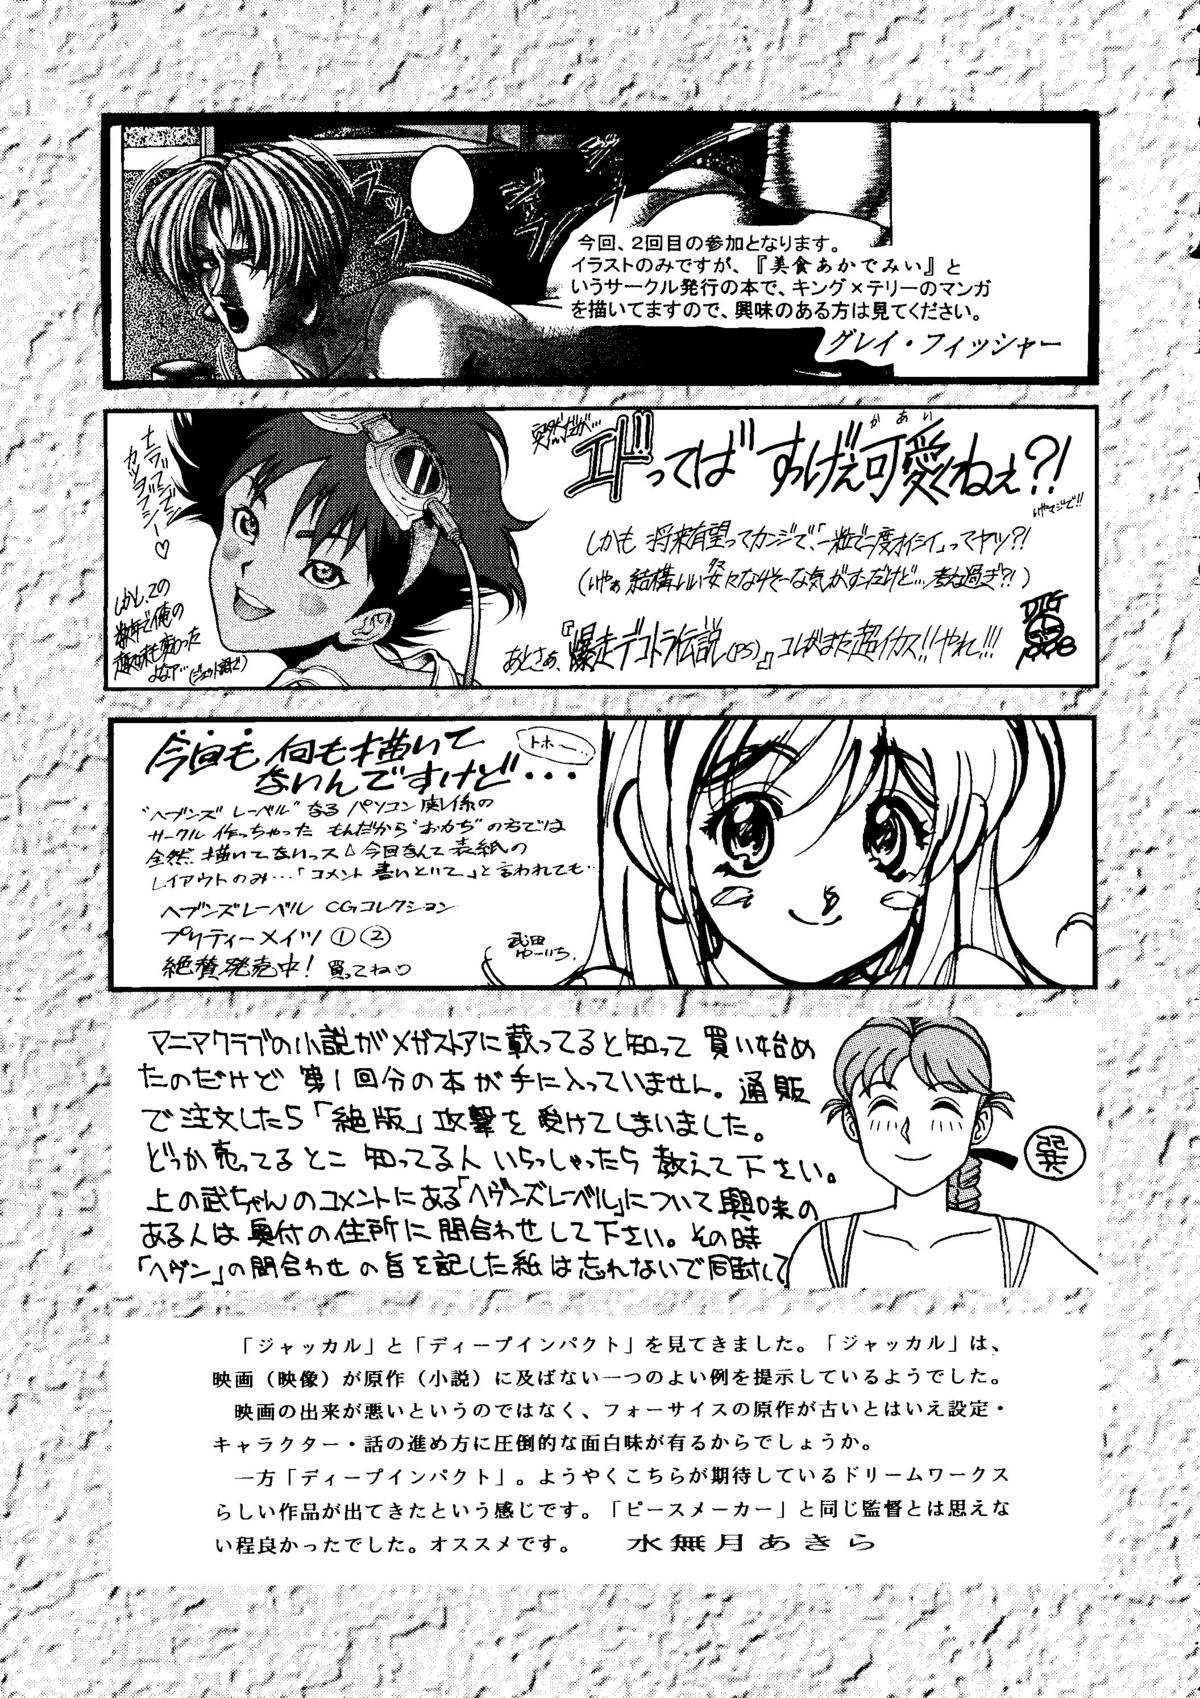 今回、2回目の参加となります。
イラストのみですが、『美食あかでみい』と
いうサークル発行の本で、キング×テリーのマンガ
を描いてますので、興味のある方は見てください。
グレイ・フィッシャー
突然だが…
エドってば すっげぇ可愛くねぇ?!
かあい
しかも 将来有望ってカンジで、「一粒で二度オイシイ」ってヤツ?!
あとさぁ、『爆走デコトラ伝説(PS)』コレがまた超イカス!!やれ!!!
今回も 何も描いて
ないんですけど・・・
トホー…
"ヘブンズ レーベル" なる パソコン関係の
サークル 作っちゃった もんだから "おかぢ" の方では
全然 描いてないっス 今回なんて 表紙の
レイアウトのみ…「コメント 書いといて」と言われても…
ヘブンズレーベル CGコレクション
プリティーメイツ ① ②
絶賛発売中! 買ってね♡
武田
ゆーいち.
マニアクラブの小説がメガストアに載ってると知って 買い始め
たのだけど 第1回分の本が手に入っていません。通販
で注文したら「絶版」攻撃を受けてしまいました。
どっか売ってるとこ 知ってる人 いらっしゃったら 教えて下さい。
上の武ちゃんのコメントにある「ヘヴンズレーベル」について興味の
ある人は奥付の住所に問合わせして下さい。その時
「ヘヴン」の問合わせの旨を記した紙は忘れないで同封して
巽
「ジャッカル」と「ディープインパクト」を見てきました。「ジャッカル」は、
映画(映像)が原作(小説)に及ばない一つのよい例を提示しているようでした。
映画の出来が悪いというのではなく、フォーサイスの原作が古いとはいえ設定・
キャラクター・話の進め方に圧倒的な面白味が有るからでしょうか。
一方「ディープインパクト」。ようやくこちらが期待しているドリームワークス
らしい作品が出てきたという感じです。「ピースメーカー」と同じ監督とは思えな
い程良かったでした。オススメです。 水無月あきら